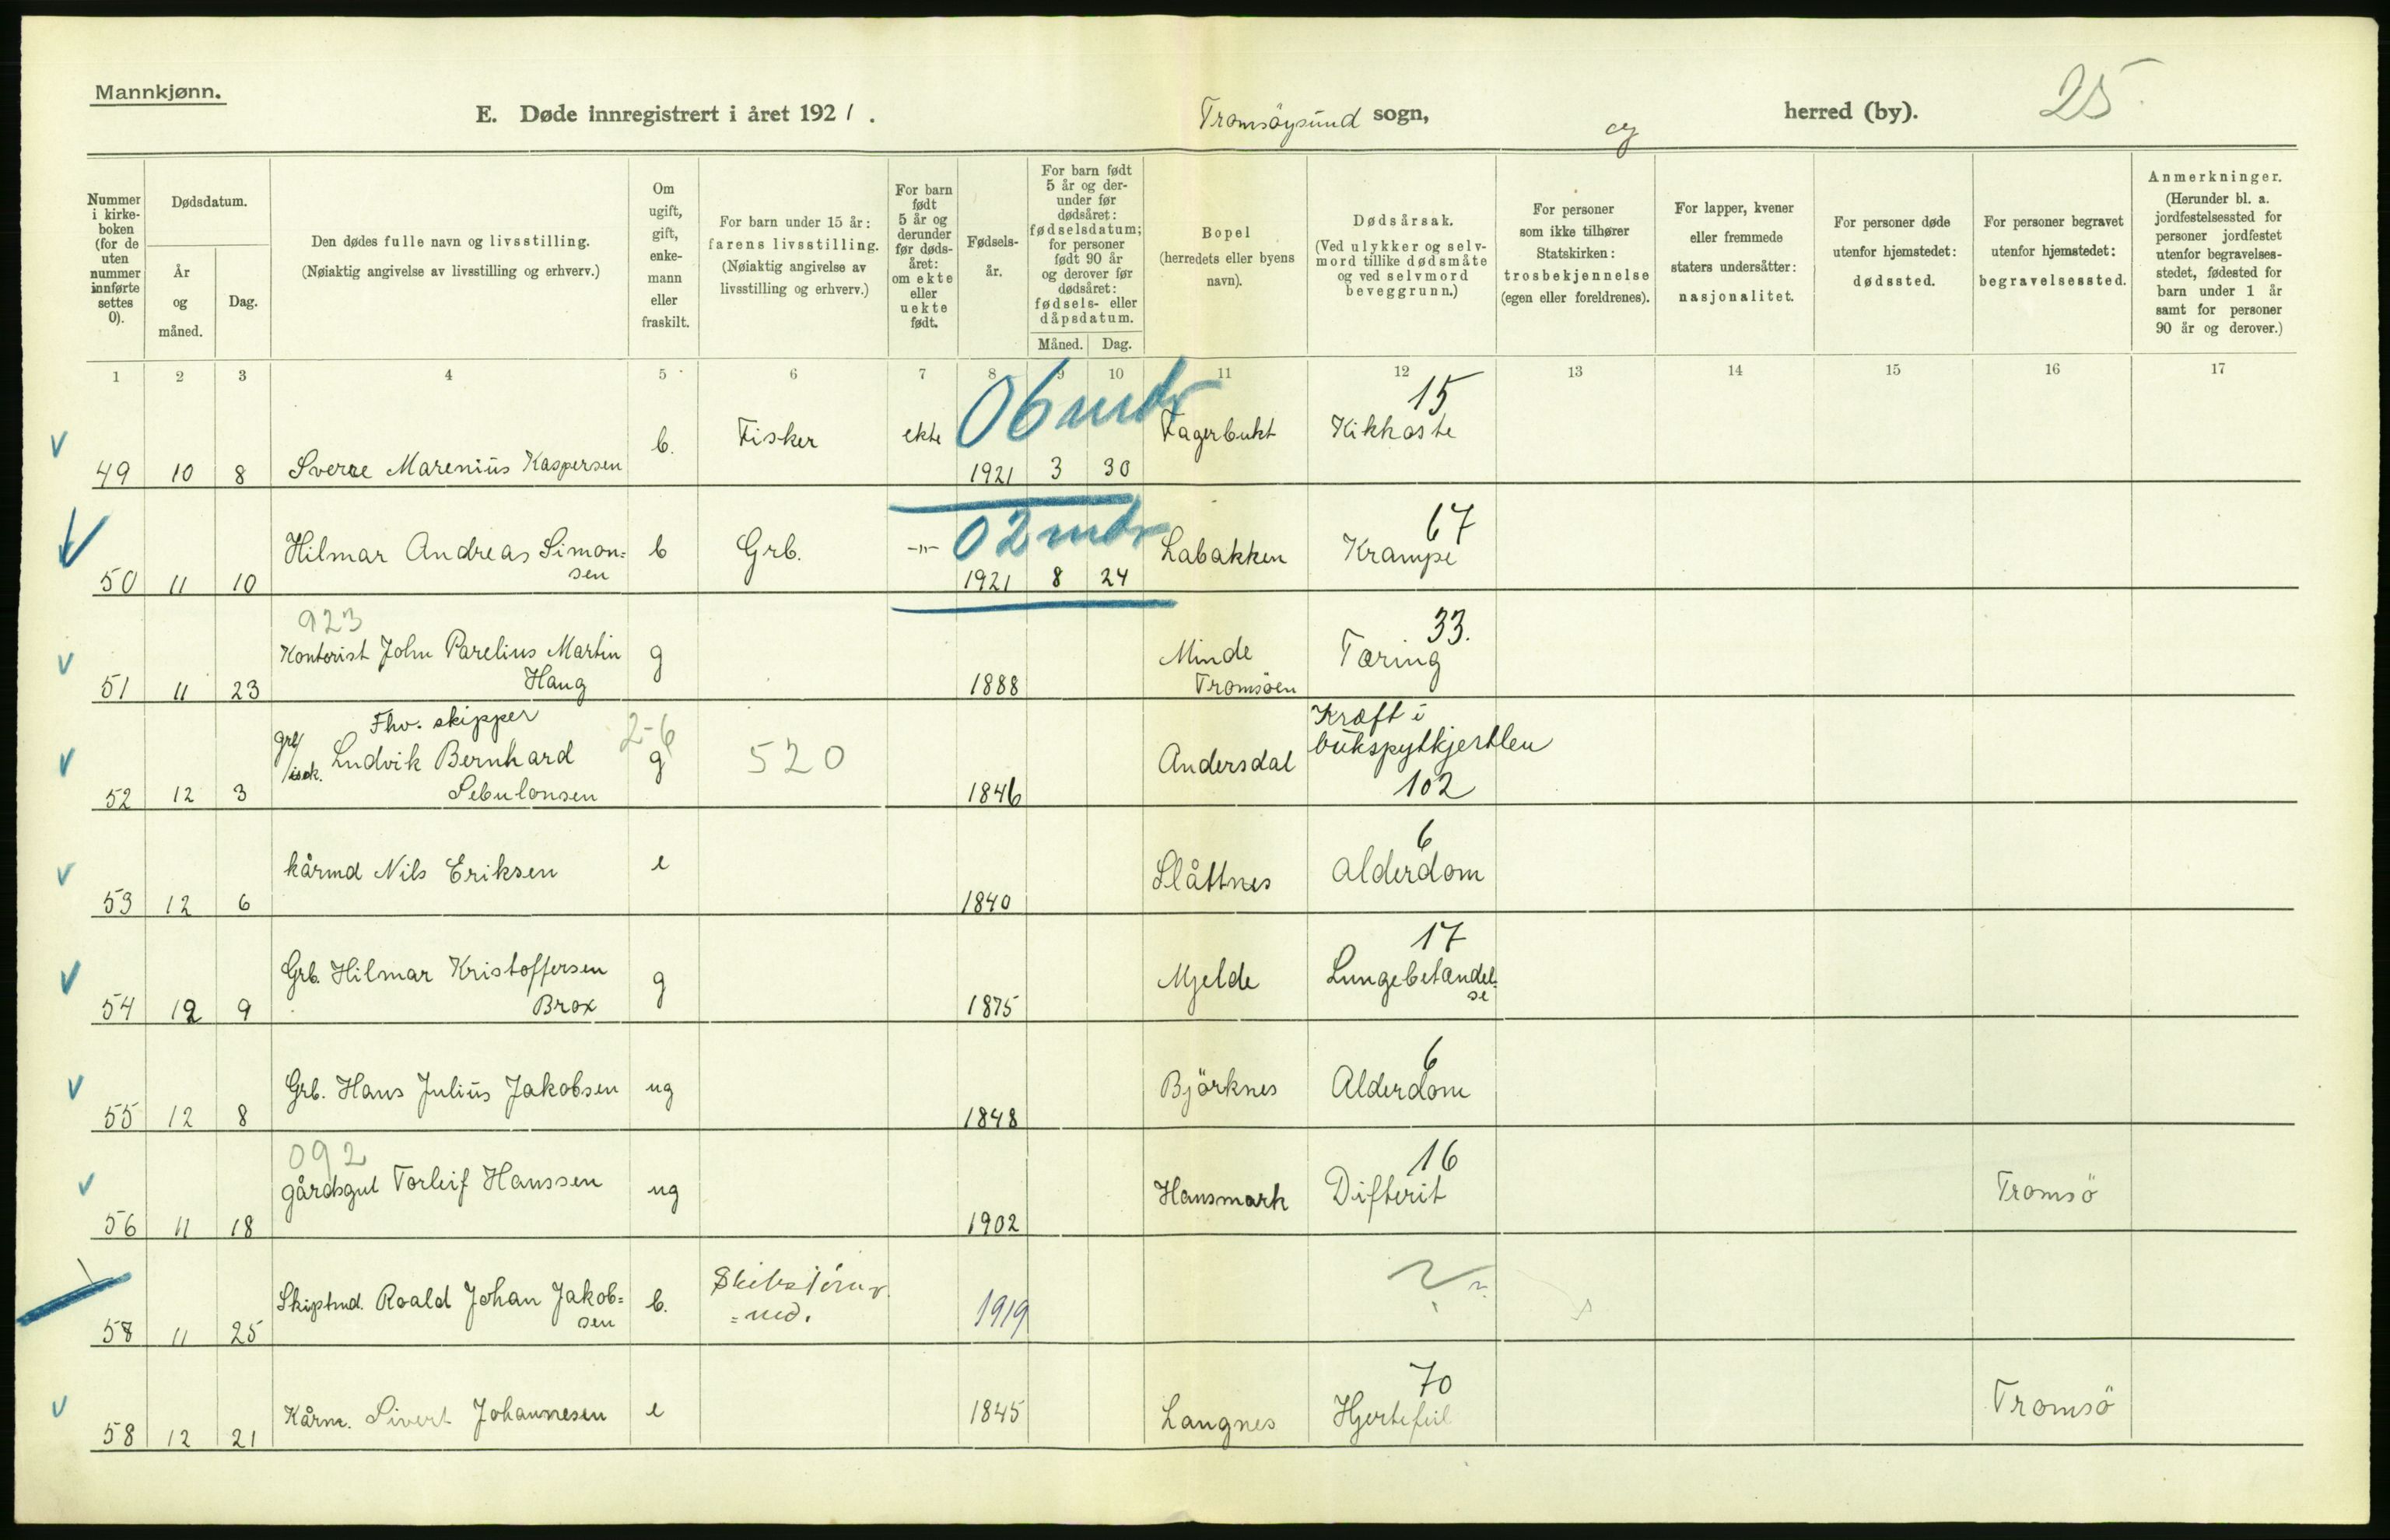 Mannkjønn.
E. Døde innregistrert i året 1921.
Tromsöysund sogn,
og
herred (by).
25
Nummer i kirke-boken (for de uten nummer innførte settes 0).
Dødsdatum.
År og måned.
Dag.
Den dødes fulle navn og livsstilling.
(Nøiaktig angivelse av livsstilling og erhverv.)
Om ugift, gift, enke-mann eller fraskilt.
For barn under 15 år: farens livsstilling.
(Nøiaktig angivelse av livsstilling og erhverv.)
For barn født 5 år og derunder før døds-året: om ekte eller uekte født.
Fødsels-år.
For barn født 5 år og der-under før dødsåret: fødselsdatum; for personer født 90 år og derover før dødsåret: fødsels- eller dåpsdatum.
Måned. Dag.
Bopel (herredets eller byens navn).
Dødsårsak.
(Ved ulykker og selv-mord tillike dødsmåte og ved selvmord beveggrunn.)
For personer som ikke tilhører Statskirken: trosbekjennelse (egen eller foreldrenes).
For lapper, kvener eller fremmede staters undersåtter: nasjonalitet.
For personer døde utenfor hjemstedet: dødssted.
For personer begravet utenfor hjemstedet: begravelsessted.
Anmerkninger.
(Herunder bl. a. jordfestelsessted for personer jordfestet utenfor begravelses-stedet, fødested for barn under 1 år samt for personer 90 år og derover.)
1 2 3 4 5 6 7 8 9 10 11 12 13 14 15 16 17
06 mdr 15
49 10 8 Sverre Marenius Kaspersen b. Fisker ekte 1921 3 30 Fagerbukt Kikhoste
02 mdr 67
50 11 10 Hilmar Andreas Simon=sen b Grb. -"- 1921 8 24 Labakken Krampe
923 33.
51 11 23 Kontorist John Parelius Martin Haug g 1888 Minde Tromsöen Tæring
52 12 3 Fhv. skipper Ludvik Bernhard Sebulonsen 2-6 g 520 1846 Andersdal Kræft i bukspytkjertlen 102
6
53 12 6 kårmd Nils Eriksen e 1840 Slåttnes Alderdom
17
54 12 9 Grb. Hilmar Kristoffersen Brox g 1875 Mjelde Lungebetændel=se
6
55 12 8 Grb. Hans Julius Jakobsen ug 1848 Björknes Alderdom
092 16
56 11 18 gårdsgut Torleif Hanssen ug 1902 Hansmark Difterit Tromsö
58 11 25 Skiptmd. Roald Johan Jakob=sen b. 1919 ?
70
58 12 21 Kårm. Sivert Johannesen e 1845 Langnes Hjertefeil Tromsö